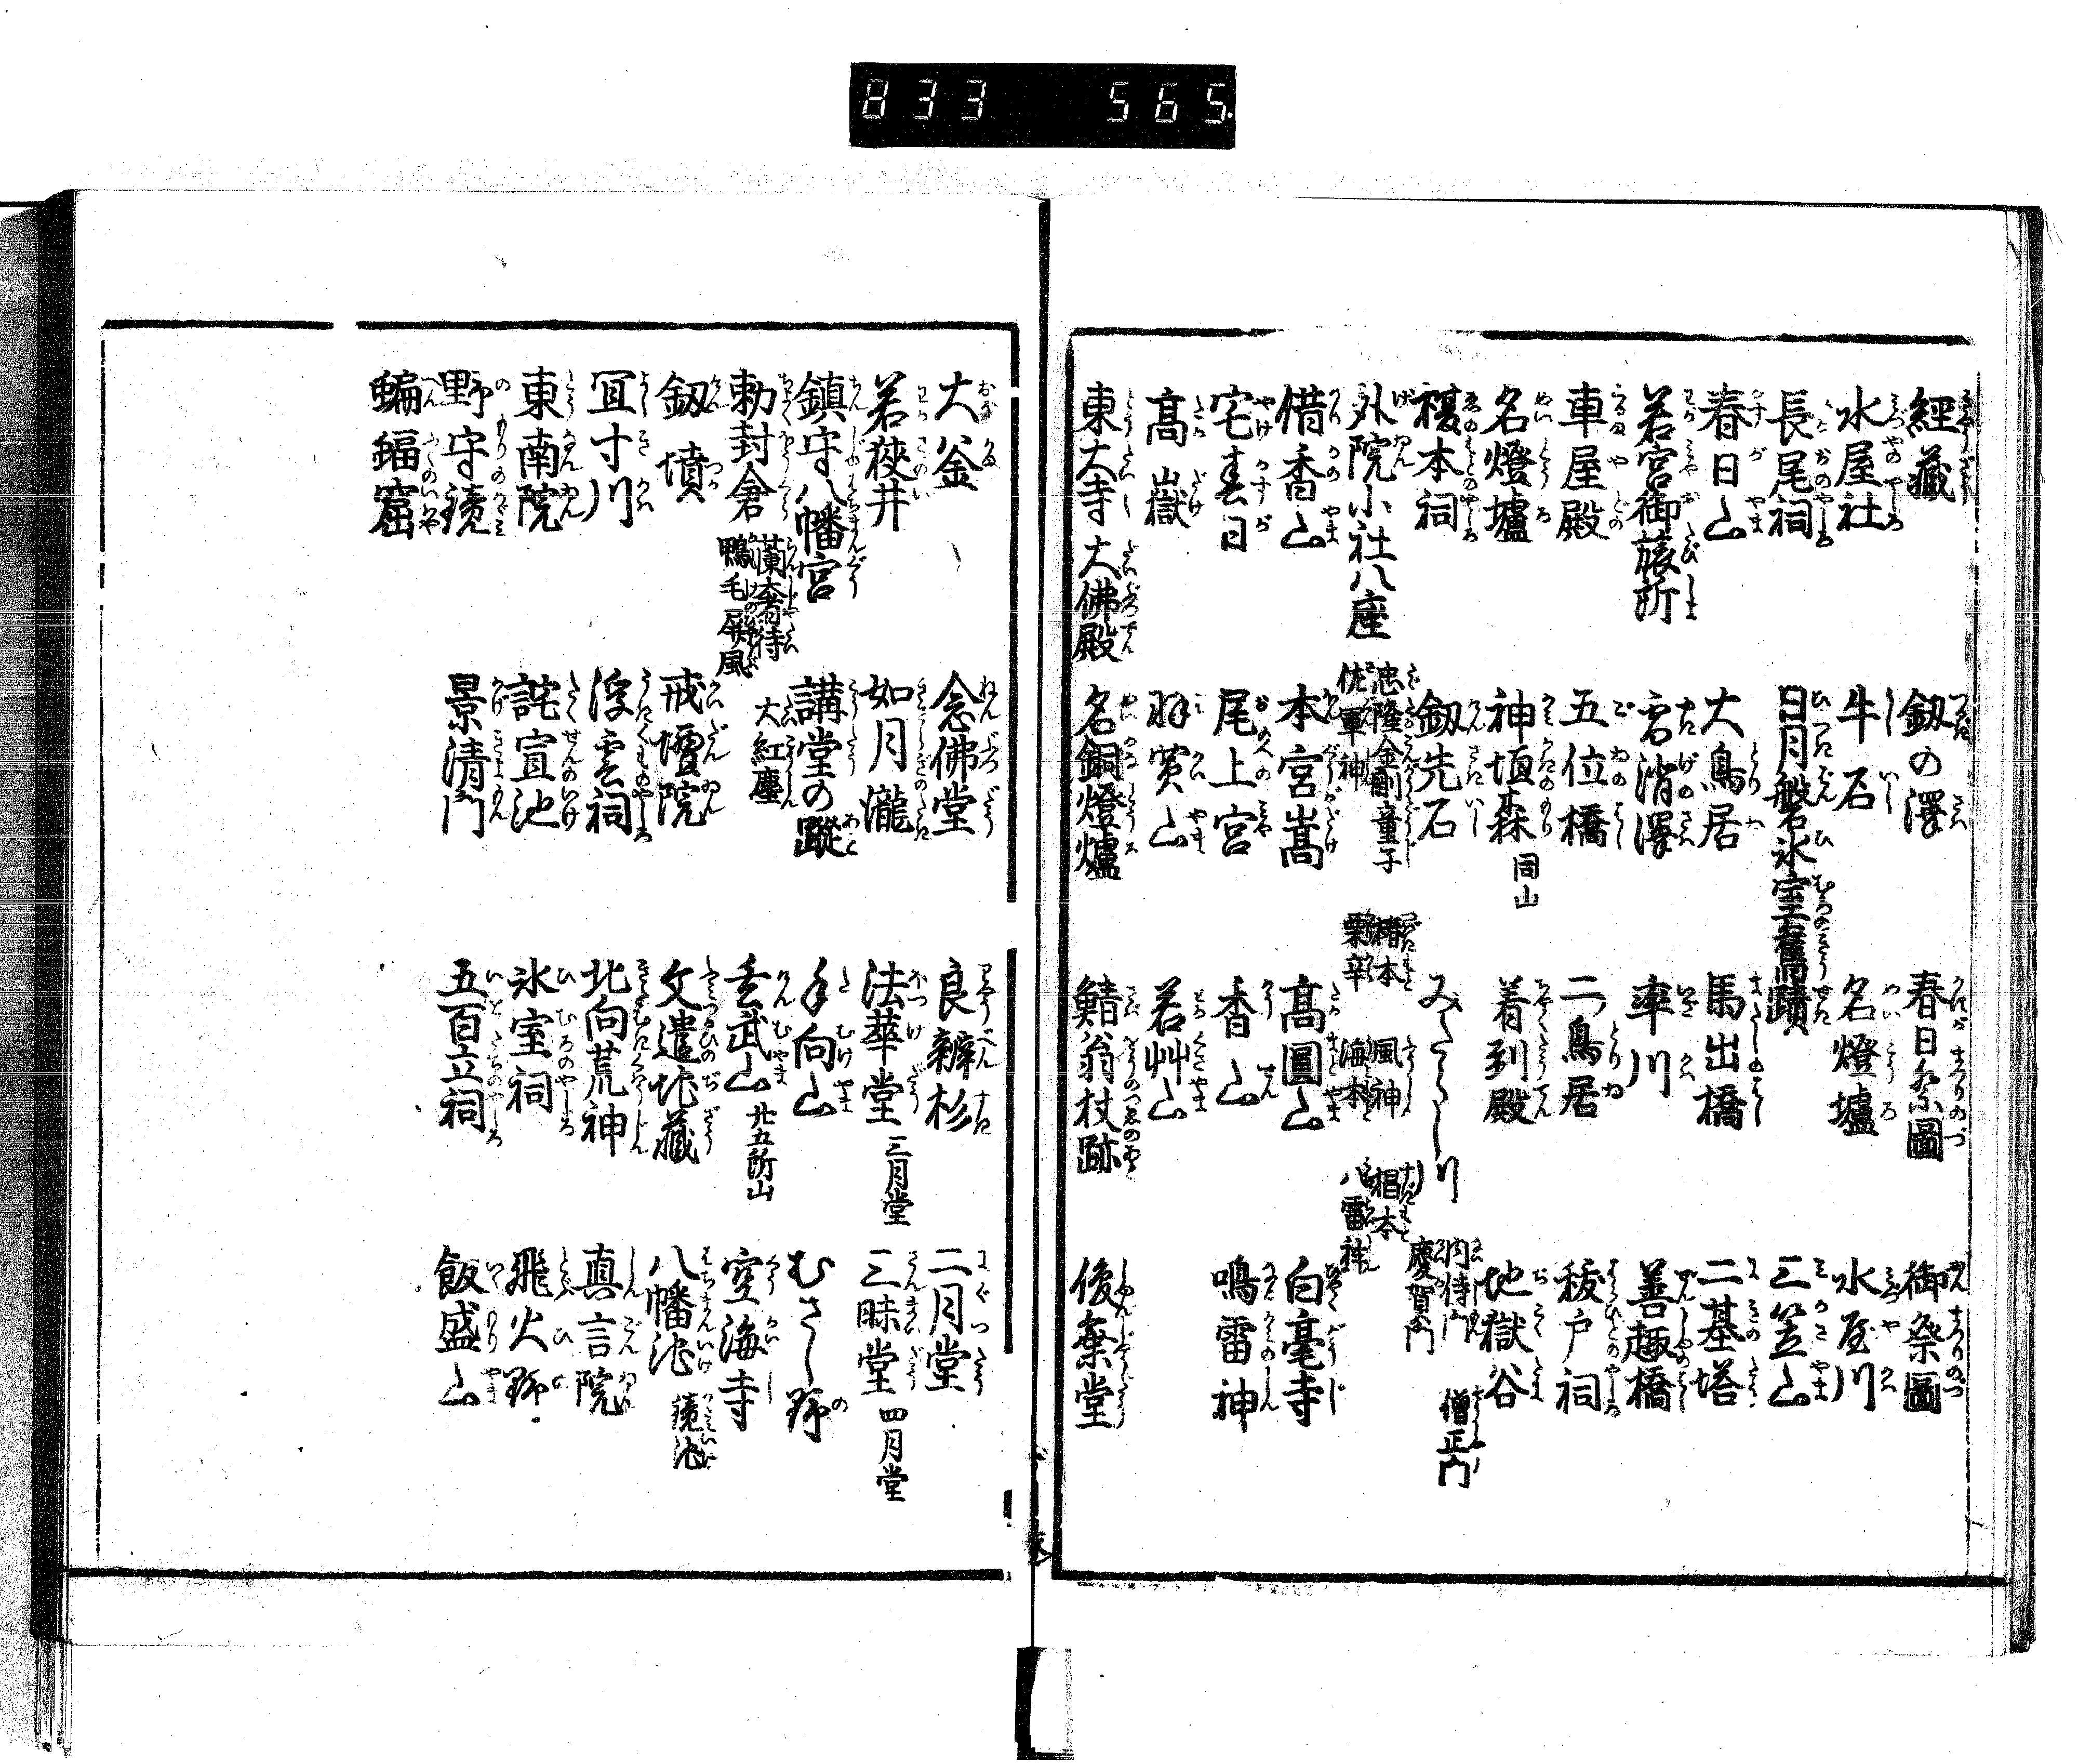 833 565
經藏 釼の澤 春日祭圖 御祭圖
水屋社 牛石 名燈壚 水屋川
長尾祠 日月磐 氷室舊蹟 三笠山
春日山 大鳥居 馬出橋 二基塔
若宮御旅所 雪消澤 率川 善趣橋
車屋殿 五位橋 二鳥居 祓戸祠
名燈壚 神垣森 同山 着到殿 地獄谷
榎本祠 釼先石 みたらし川 内侍門 慶賀門 僧正門
外院小社八座 忠隆金剛童子 佐軍神 椿本 栗辛 風神 海本 椙本 八雷神
借香山 本宮嵩 高圓山 白毫寺
宅春日 尾上宮 香山 鳴雷神
高嶽 羽買山 若艸山
東大寺大佛殿 名銅燈爐 鯖翁杖跡 後棄堂
大釜 念佛堂 良辨杉 二月堂
若狹井 如月瀧 法華堂 三月堂 三昧堂 四月堂
鎮守八幡宮 講堂の蹤 手向山 むさし野
勅封倉 蘭奢待 鴨毛屏風 大紅塵 玄武山 廿五所山 空海寺
釼墳 戒壇院 文遣地藏 八幡池 鏡池
冝寸川 浮雲祠 北向荒神 真言院
東南院 詫宣池 氷室祠 飛火野
野守鏡 景清門 五百立祠 飯盛山
蝙蝠窟